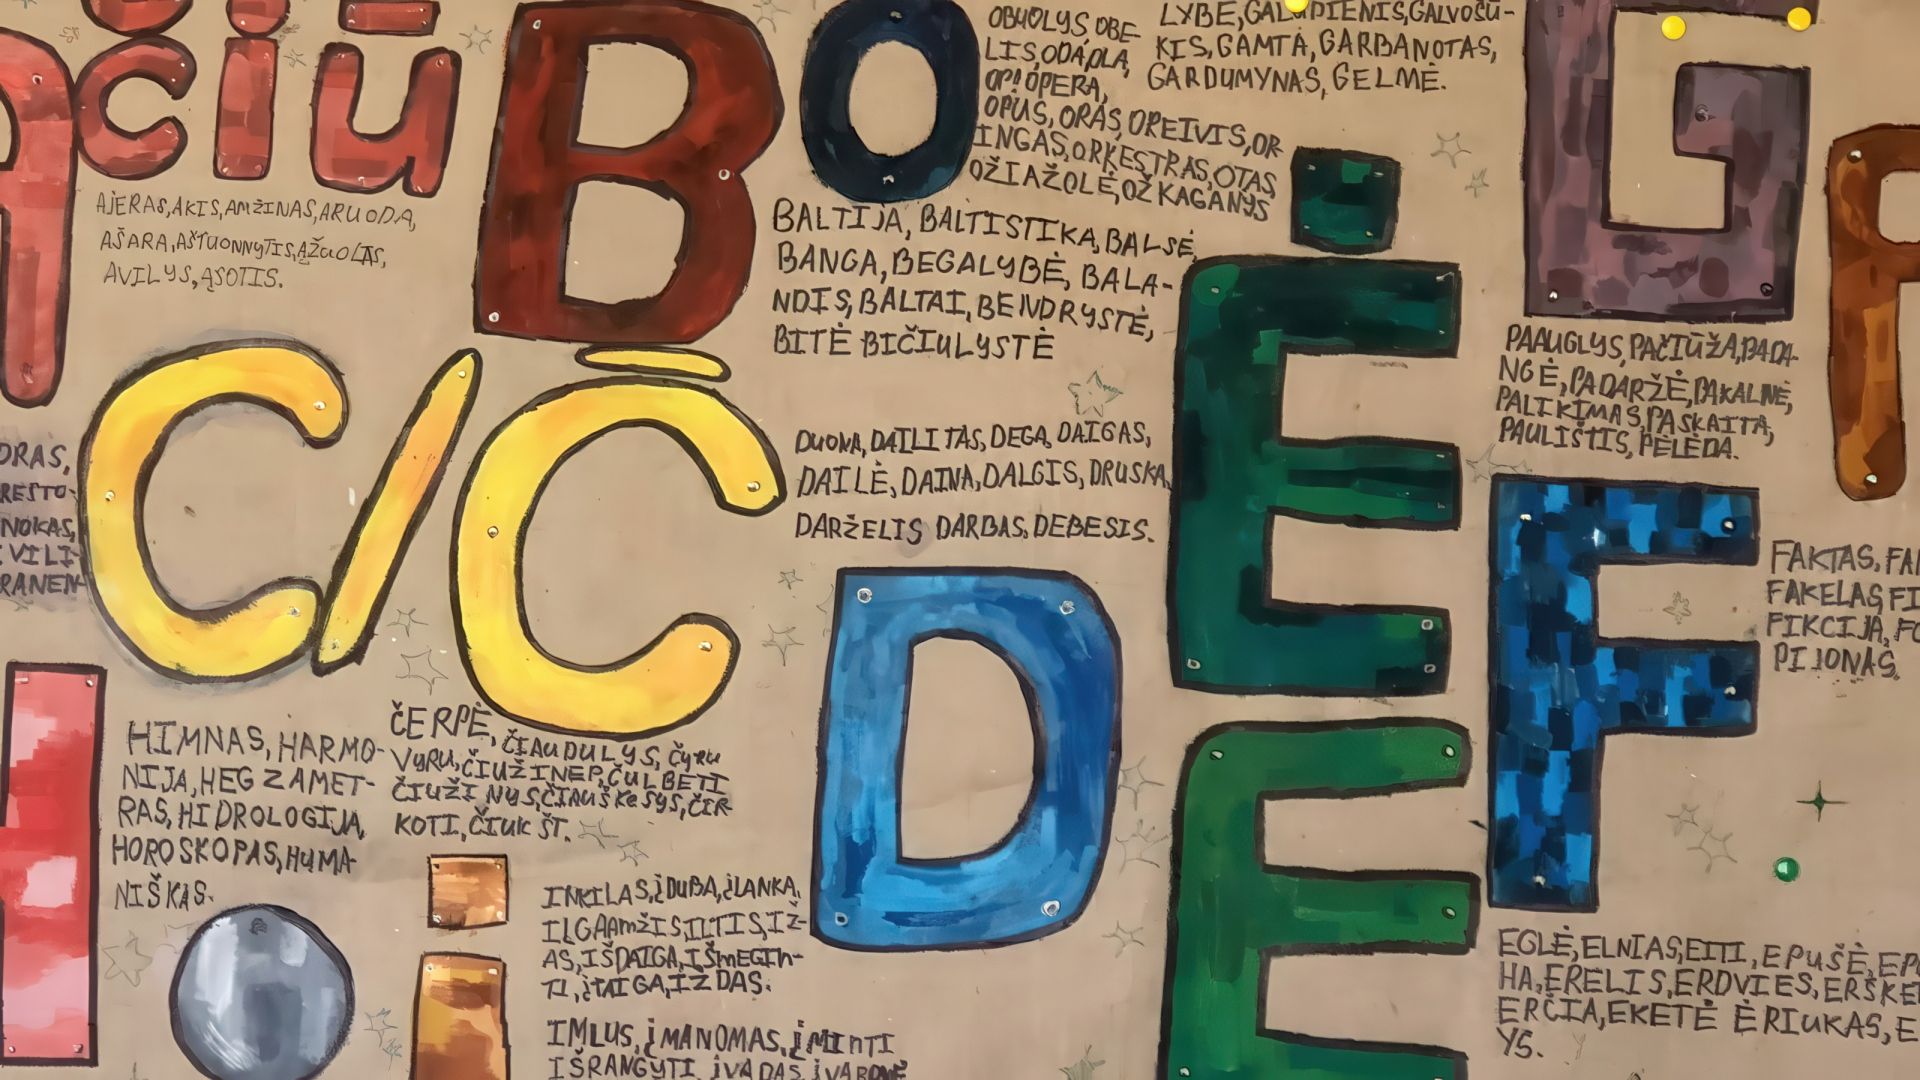 AČIŪ
B
O
G
P
C/Č
D
Ė
E
F
H
i
OBUOLYS, OBE-
LIS, ODA, OLA,
OP! OPERA,
OPUS, ORAS, OREIVIS, OR
INGAS, ORKESTRAS, OTAS,
OŽIAŽOLĖ, OŽKAGANYS
LYBE, GALUPIENIS, GALVOSŪ-
KIS, GAMTA, GARBANOTAS,
GARDUMYNAS, GELMĖ.
AJERAS, AKIS, AMŽINAS, ARUODA,
AŠARA, AŠTUONNYTIS, ĄŽUOLAS,
AVILYS, ĄSOTIS.
BALTIJA, BALTISTIKA, BALSĖ,
BANGA, BEGALYBĖ, BALA-
NDIS, BALTAI, BENDRYSTĖ,
BITĖ BIČIULYSTĖ
PAAUGLYS, PAČIŪŽA, PADA-
NGĖ, PADARŽĖ, PAKALNĖ,
PALIKIMAS, PASKAITA,
PAULIŠTIS, PELĖDA.
DUONA, DAILITAS, DEGA, DAIGAS,
DAILĖ, DAINA, DALGIS, DRUSKA,
DARŽELIS DARBAS, DEBESIS.
ORAS,
RESTO-
NOKAS,
VILI-
RANEN-
FAKTAS, FA
FAKELAS, FI
FIKCIJA, FO
PIJONAS.
HIMNAS, HARMO-
NIJA, HEGZAMET-
RAS, HIDROLOGIJA,
HOROSKOPAS, HUMA-
NIŠKAS.
ČERPĖ, ČIAUDULYS, ČYRU
VYRU, ČIUŽINEP, ČULBĖTI
ČIUŽINYS, ČIAUŠKESYS, ČIR-
KOTI, ČIUK ŠT.
INKILAS, ĮDUBA, ĮLANKA,
ILGAAMŽIS ILTIS, IŽ-
AS, IŠDAIGA, IŠMEGIN-
TI, ĮTAIGA, IZDAS.
IMLUS, ĮMANOMAS, ĮMINTI
IŠRANGYTI, ĮVADAS, ĮVAROVĖ
EGLĖ, ELNIAS, EITI, EPUŠĖ, EPO
HA, ERELIS, ERDVIES, ERŠKE
ERČIA, EKETĖ ĖRIUKAS, E
YS.